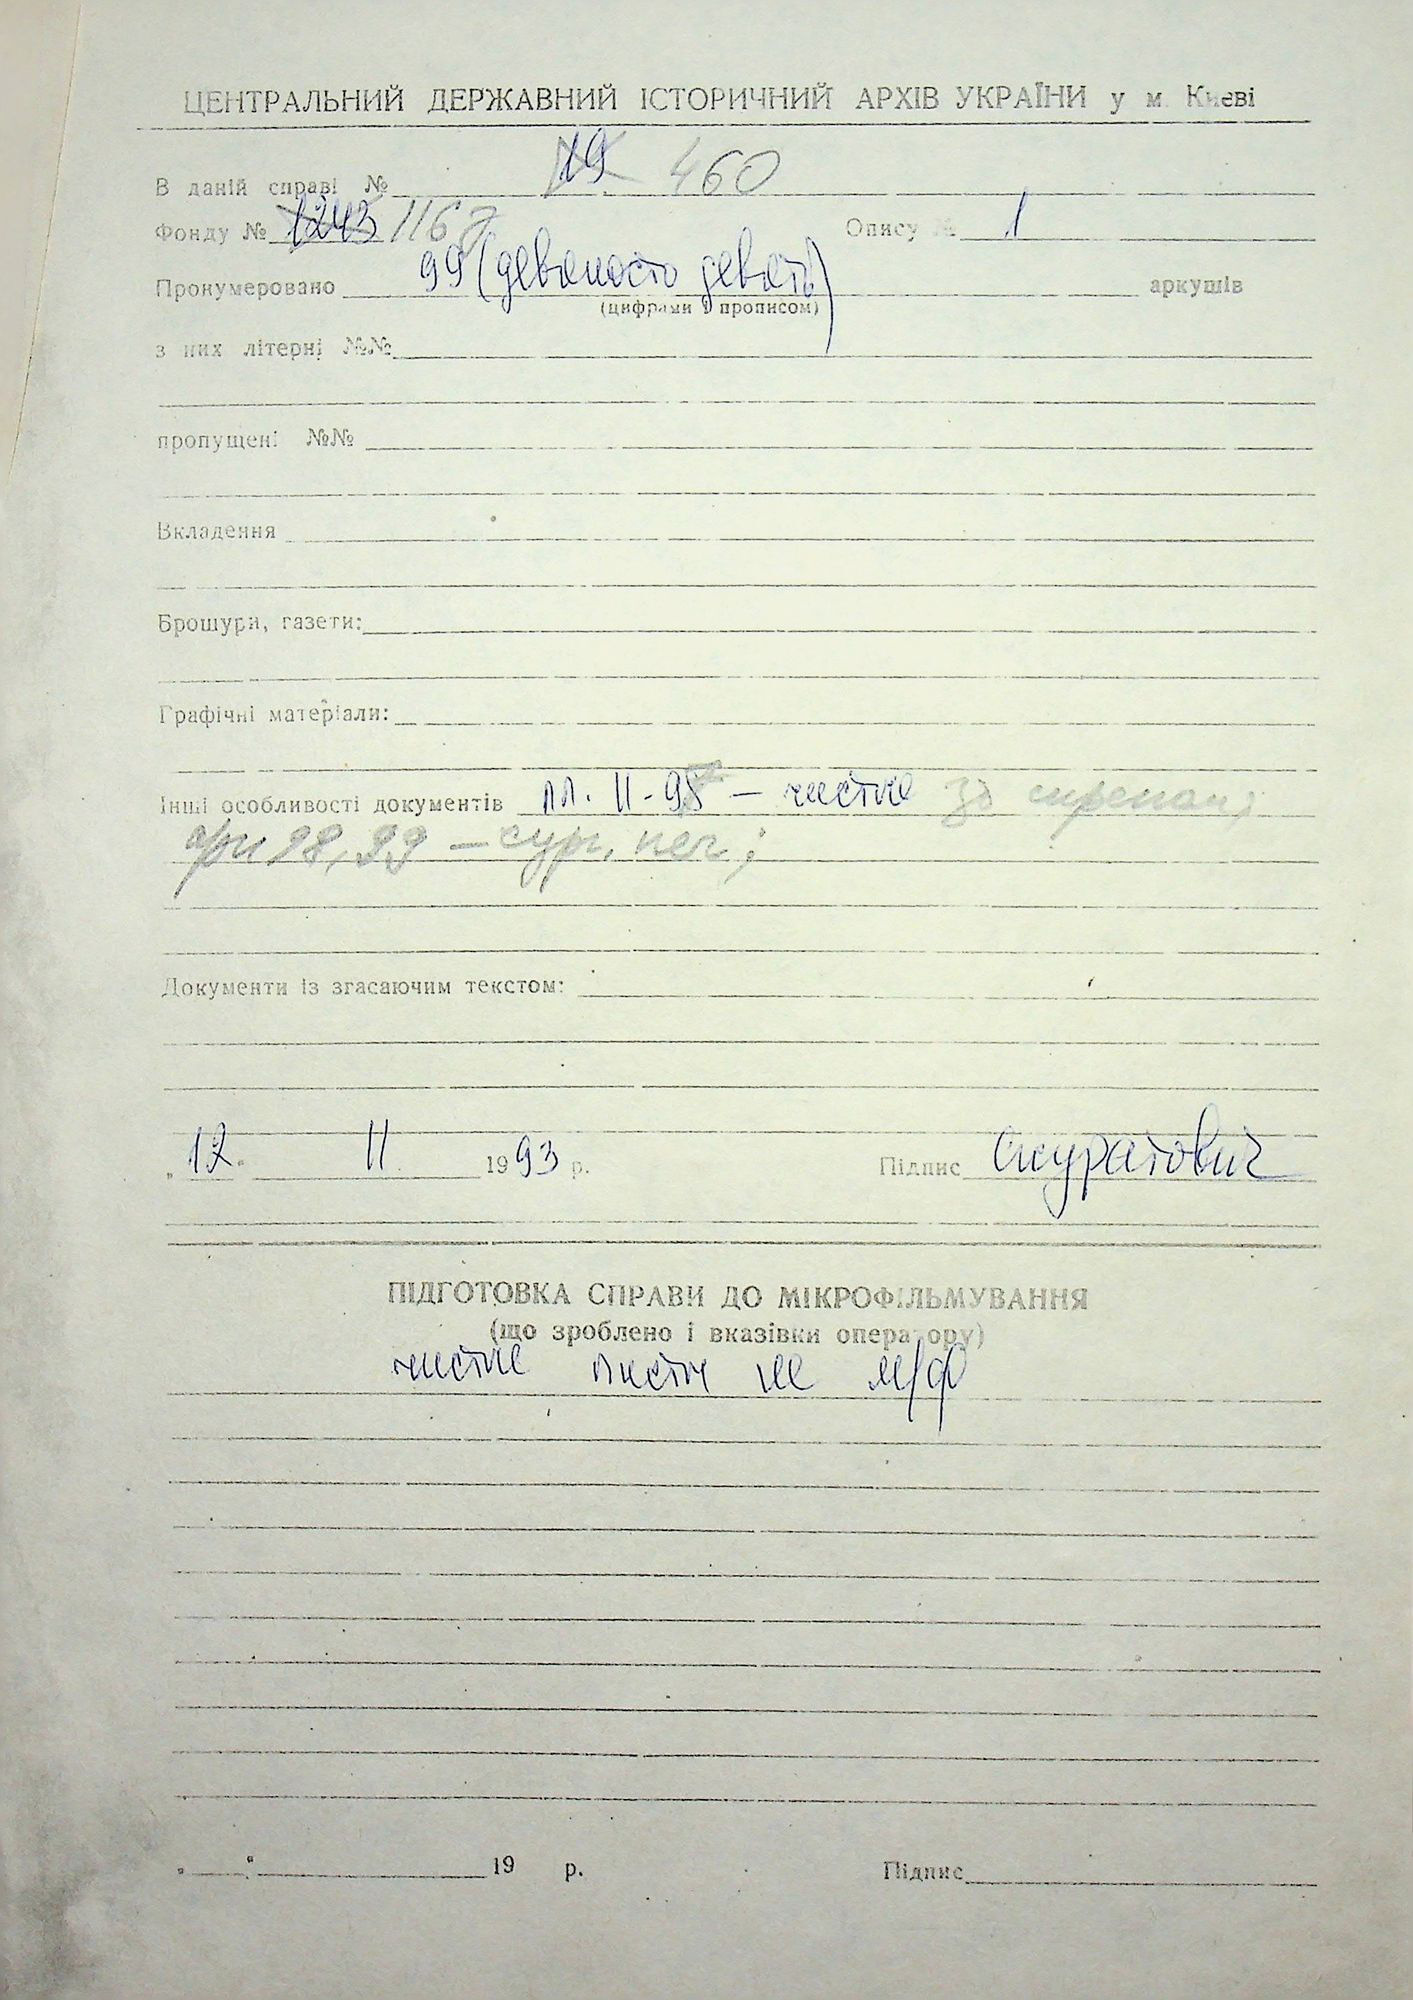 ЦЕНТРАЛЬНИЙ ДЕРЖАВНИЙ ІСТОРИЧНИЙ АРХІВ УКРАЇНИ у м. Києві
В даній справі № 19 460
Фонду № 1243 1167 Опису № 1
Пронумеровано 99 (девяносто девять) аркушів
(цифрами і прописом)
з них літерні №№
пропущені №№
Вкладення
Брошури, газети:
Графічні матеріали:
Інші особливості документів лл. 11-97 — чистые
арк 98, 99 — сург. печ;
Документи із згасаючим текстом:
„12" 11 1993 р. Підпис Скуратович
ПІДГОТОВКА СПРАВИ ДО МІКРОФІЛЬМУВАННЯ
(що зроблено і вказівки оператору)
чистые листы не м/ф
„ " 19 р. Підпис